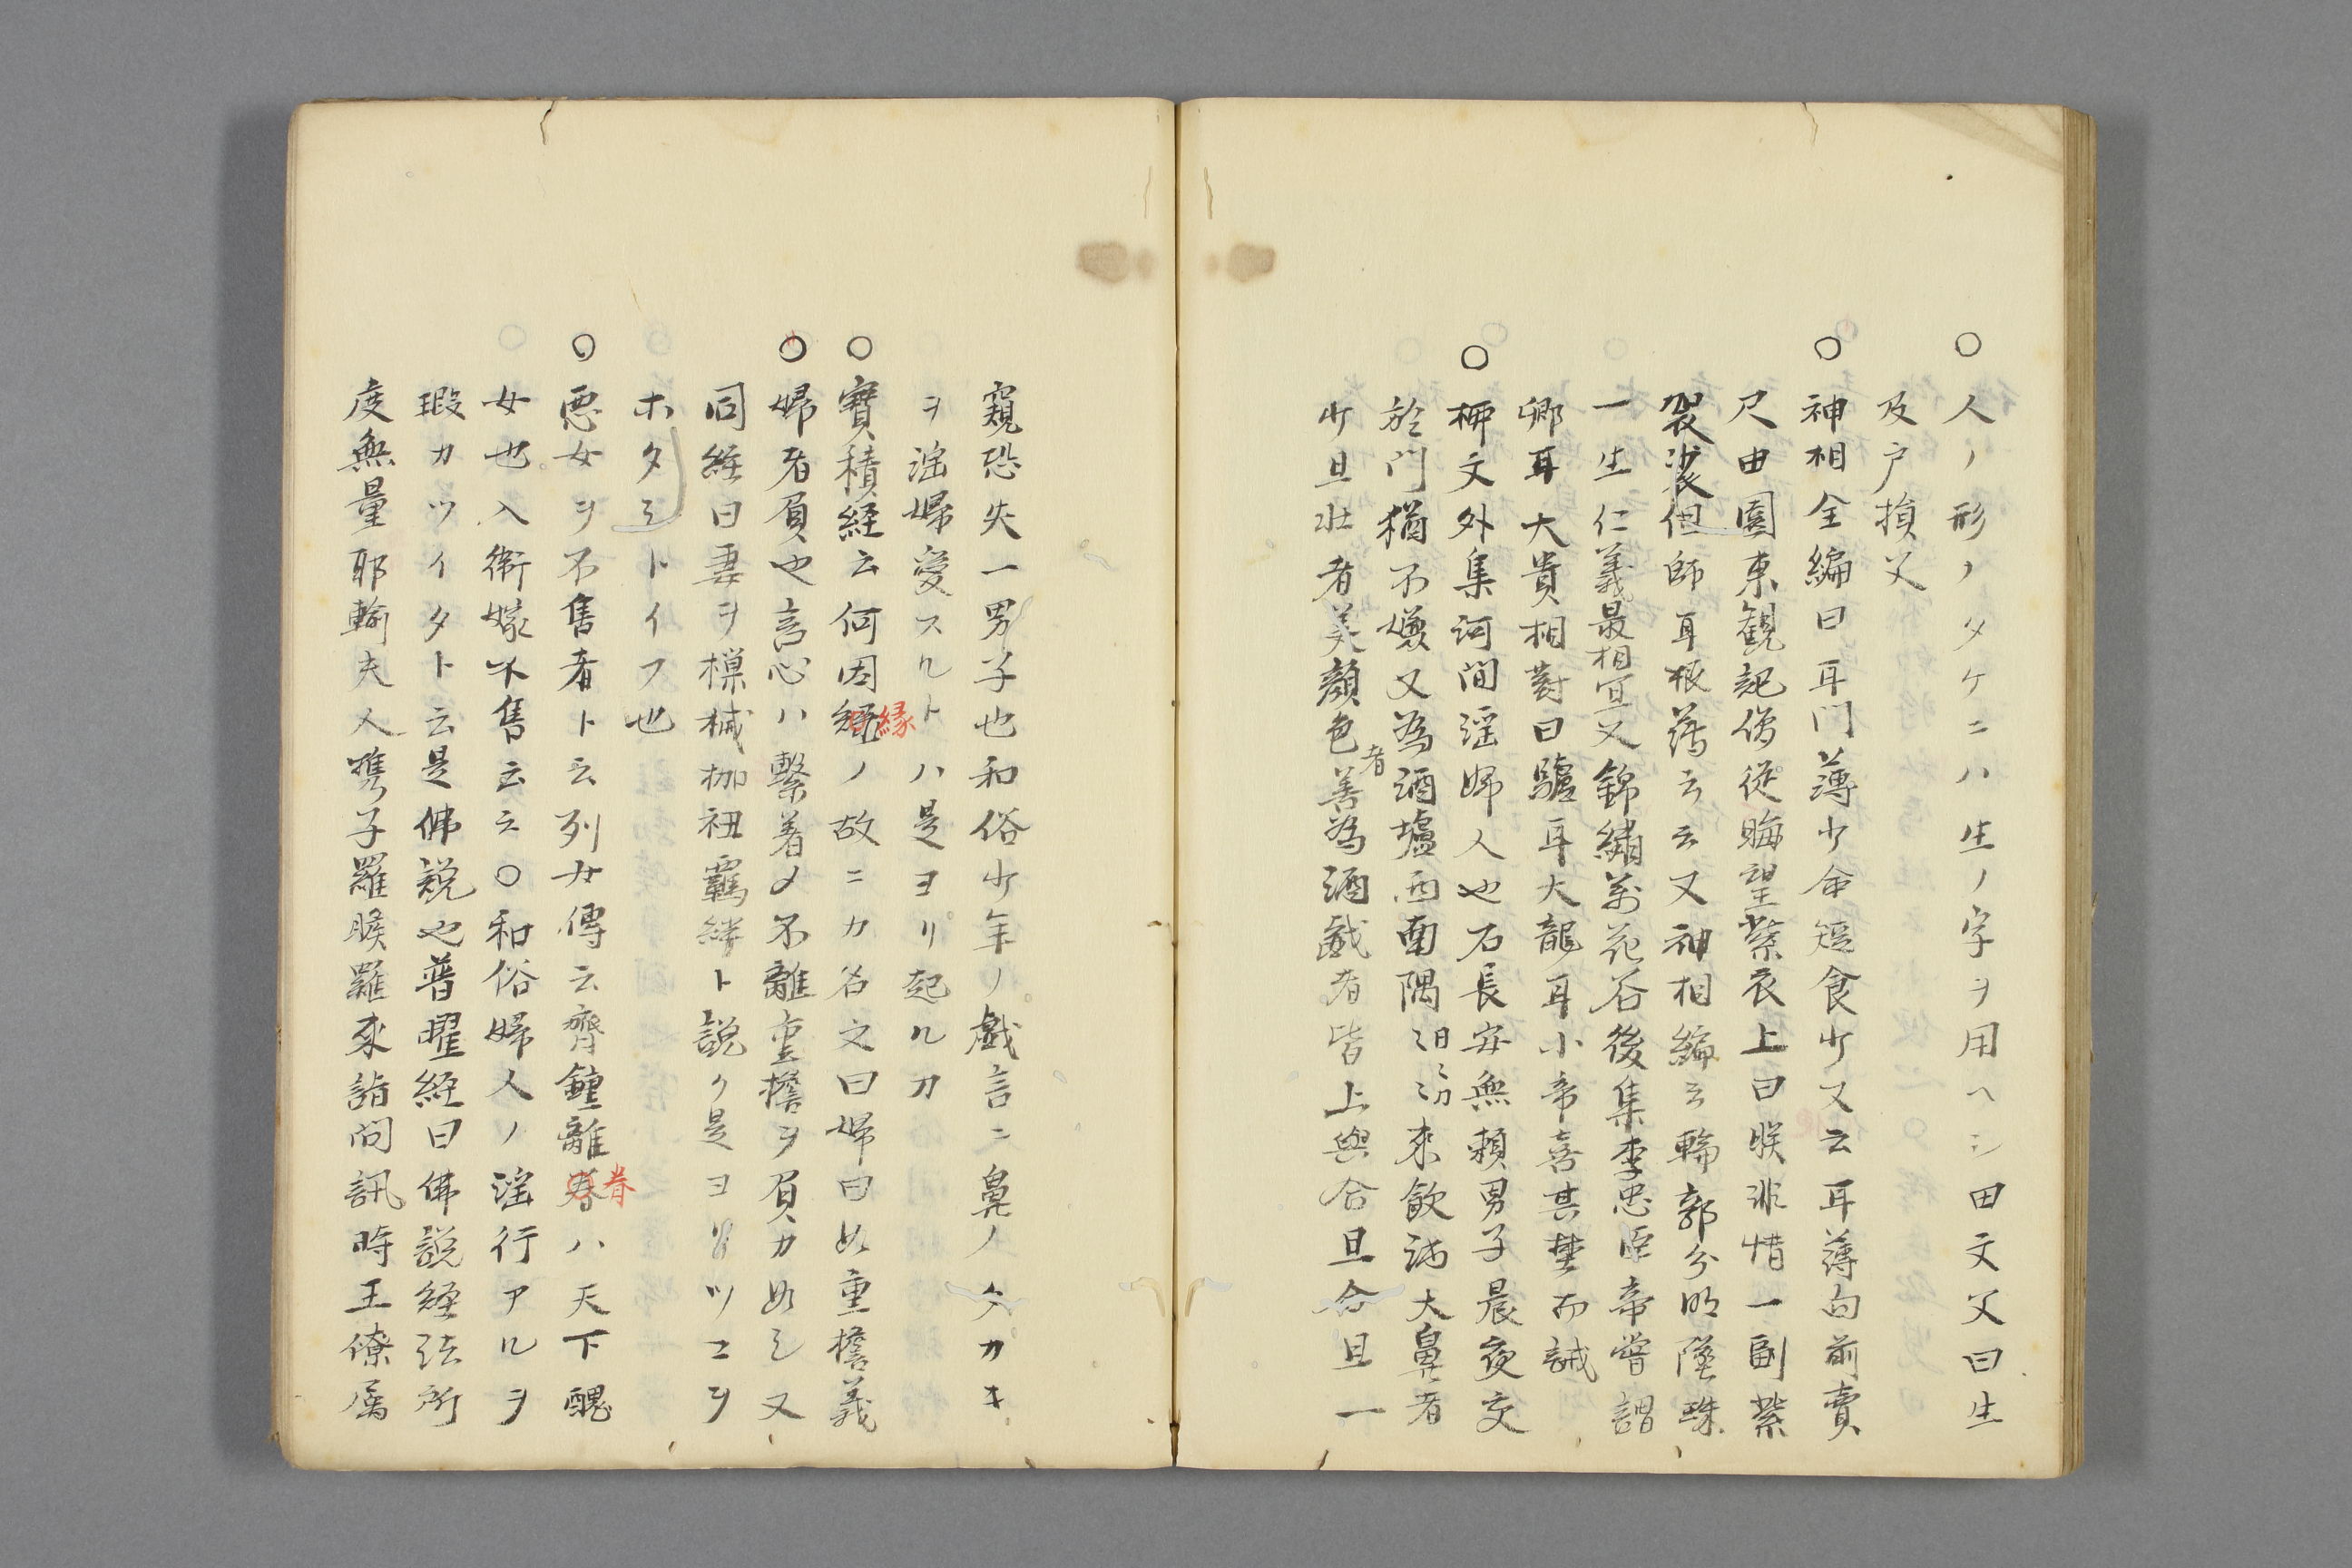 ○人ノ形ノタケニハ生ノ字ヲ用ヘシ田文父曰生
及戸損父
○神相全編曰耳門薄少命短食少又云耳薄向前賣
尺田園東觀記僧從晦望紫衣上曰朕非惜一副紫
袈裟但師耳根薄云云又神相編云輪郭分明墜珠
一生仁義最相宜又錦繡萬花谷後集李忠臣帝嘗謂
卿耳大貴相對曰驢耳大龍耳小帝喜其埜而誠
○柳文外集河間淫婦人也石長安無賴男子晨夜交
於門猶不慊又為酒壚西南隅
少且壯者美顏色者善為酒戲者皆上與合且合且一
窺恐失一男子也和俗少年ノ戲言ニ鼻ノタカキ
ヲ淫婦愛スルトハ是ヨリ起ルカ
○寶積経云何因經縁ノ故ニカ名文曰婦曰如重擔義
○婦者負也言心ハ繫着メ不離重擔ヲ負カ如シ又
同經曰妻ヲ樔械枷杻羈絆ト說ク是ヨリソコヲ
ホタシトイフ也
○悪女ヲ不售者ト云列女傳云齊鍾離春眷ハ天下醜
女也入衛嫁不售云云○和俗婦人ノ淫行アルヲ
瑕カツイタト云是佛說也普曜経曰佛說經法所
度無量耶輸夫人携子羅睺羅來詣問訊時王僚属